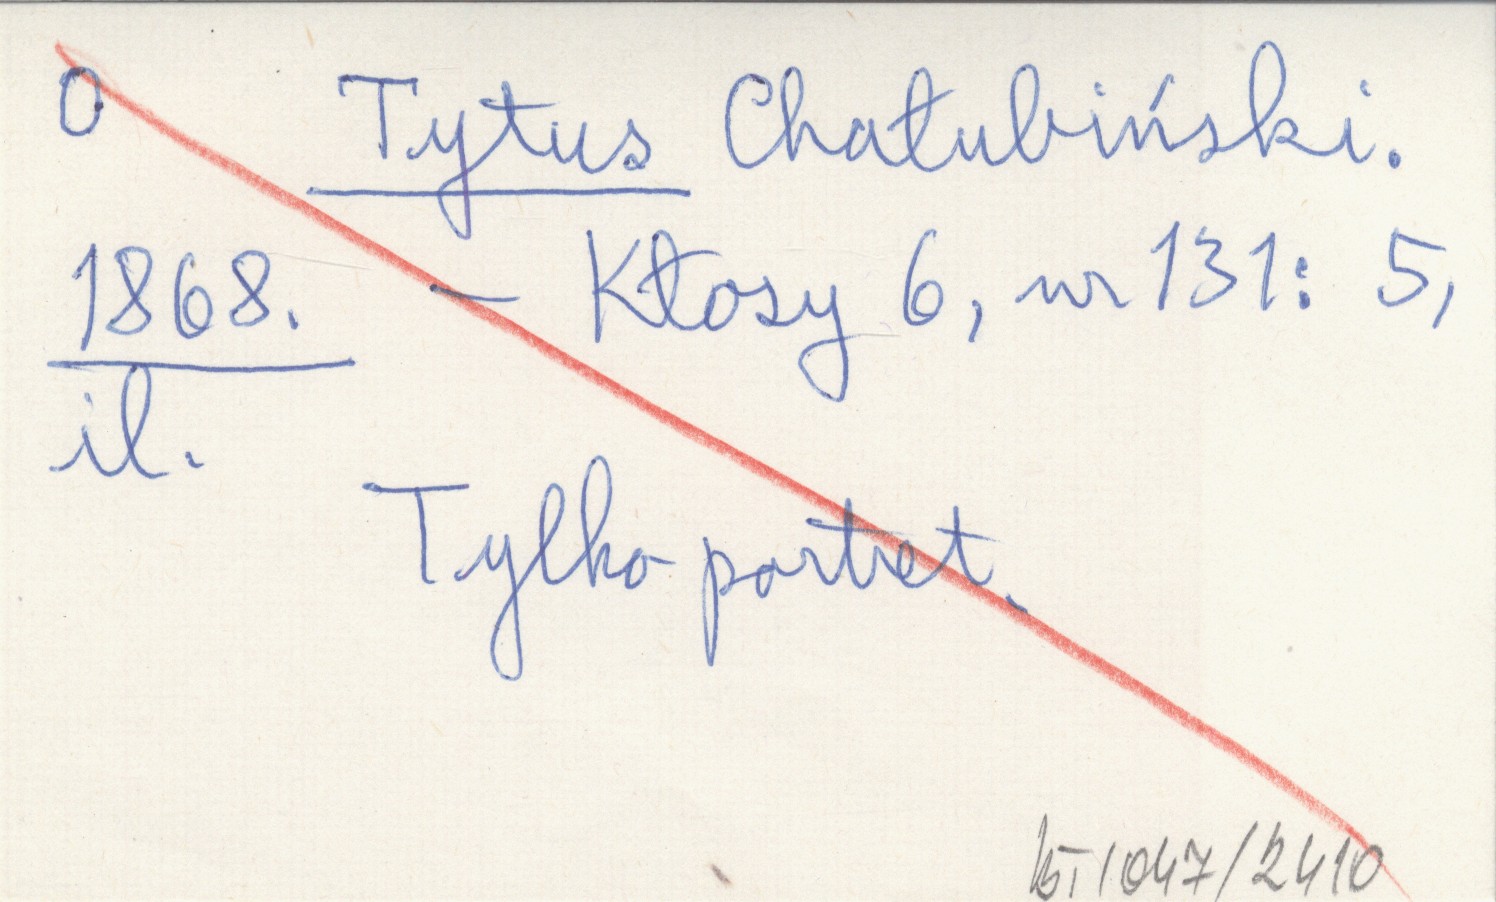 0 Tytus Chałubiński.
1868. — Kłosy 6, nr 131: 5,
il.
Tylko portret.
1047/2410